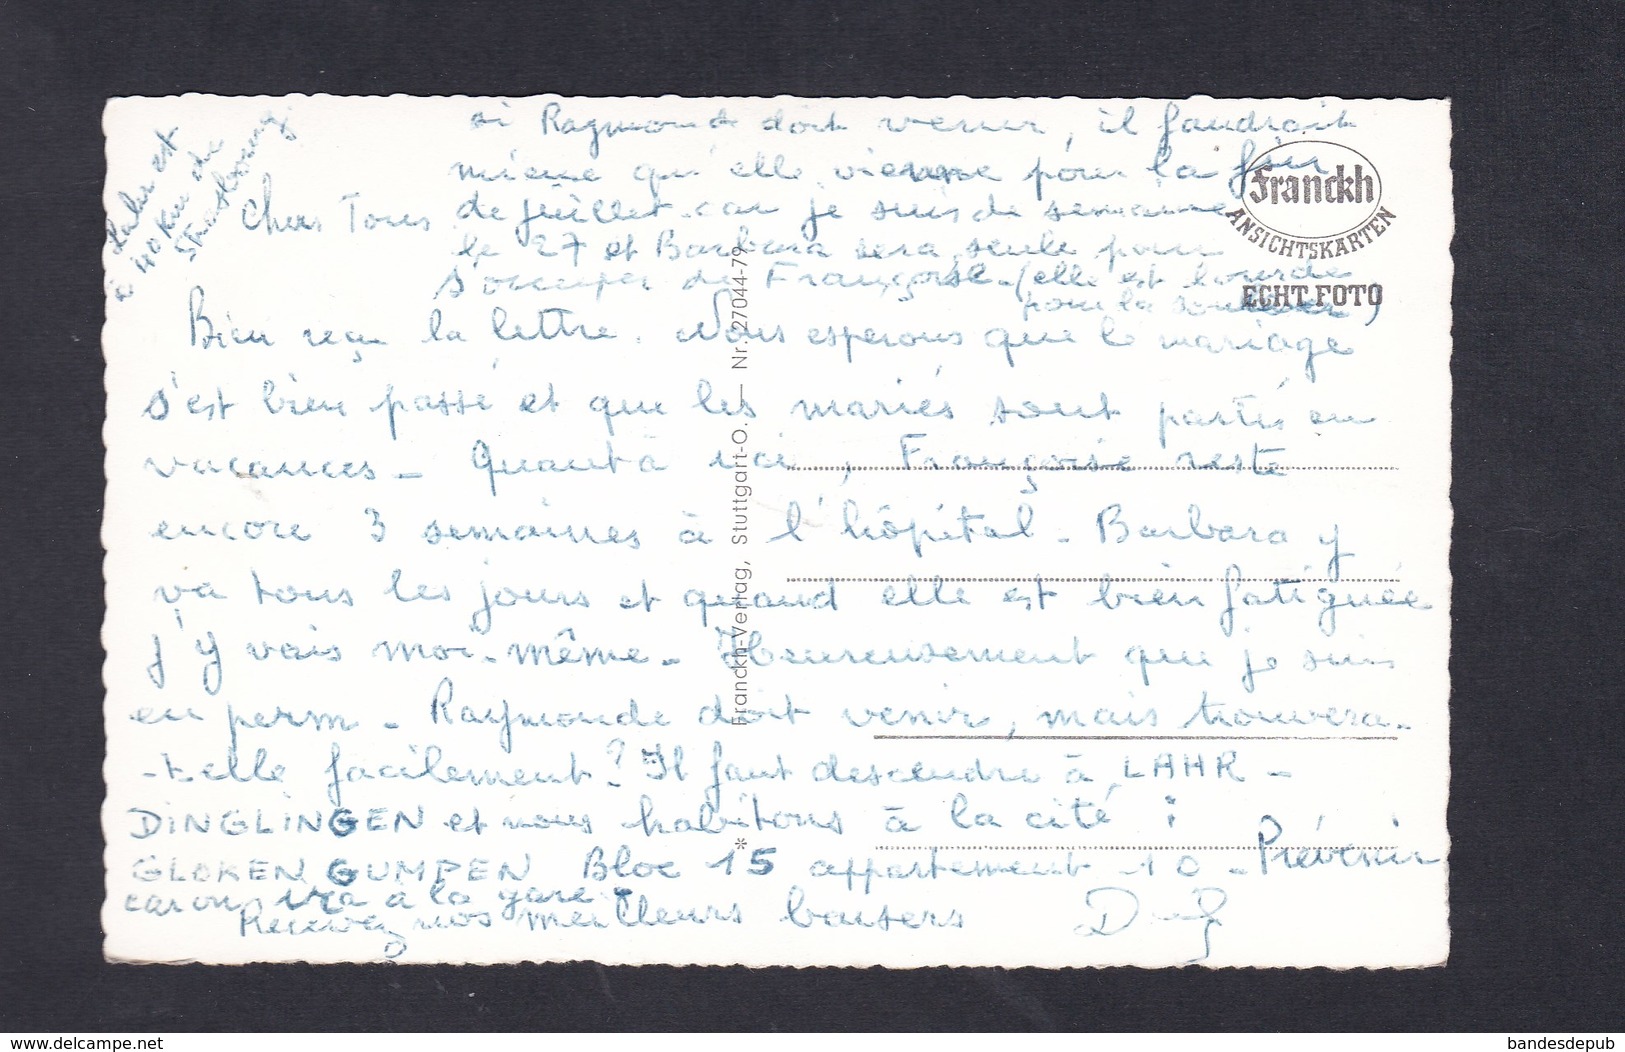 Lahr est
à 40 km de
Strasbourg
si Raymonde doit venir, il faudrait
mieux qu'elle vienne pour la fin
de juillet car je suis de semaine
le 27 et Barbara sera seule pour
s'occuper de Françoise (elle est lourde
pour la
Franckh
ANSICHTSKARTEN
ECHT FOTO
Chers Tous
Bien reçu la lettre. Nous esperons que le mariage
s'est bien passé et que les mariés sont partis en
vacances - Quant à moi, Françoise reste
encore 3 semaines à l'hôpital - Barbara y
va tous les jours et quand elle est bien fatiguée
j'y vais moi-même - Heureusement que je suis
en perm - Raymonde doit venir, mais trouvera-
-t-elle facilement? Il faut descendre à LAHR -
DINGLINGEN et nous habitons à la cité :
GLOKEN GUMPEN Bloc 15 appartement 10 - Prévenir
car on ira à la gare -
Recevez nos meilleurs baisers
Franckh-Verlag, Stuttgart-O. — Nr. 27044-79
delcampe.net
bandesdepub